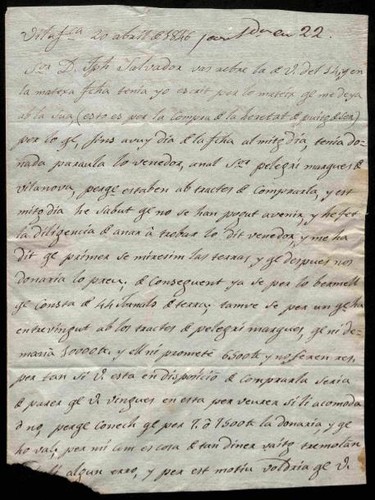 Vilafca 20 abril de 1846
Sor D. Jph Salvador vas rebre la de V. del 14 y en
la matexa fcha tenia yo escrit por lo mateix qe me deya
a la sua (esto es per la compra de la heretat de puigdser)
por lo qe, fins avuy dia de la fcha al mitg dia tenia do-
nada paraula lo venedor, anal Sor pelegri marques de
vilanova, perqe estaben ab tractes de comprarla, y est
mitg dia he sabut qe no se han pogut avenir, y he fet
la diligencia de anar á trobar lo dit venedor, y me ha
dit qe primer se miressim las terras, y qe despues nos
donaria lo preu. de conseguent ya se por lo bermell
qe consta de 44 de terra; tambe se por un qe ha
entrevingut ab los tractes de pelegri marques, qe ni de-
maná y ell ni promete y no feren res,
per tan si V. esta en disposició de comprarla seria
de parer qe V. vingues en esta per veurer si li acomoda
ó no, perqe Conech qe per la donaria y qe
ho val; per mi com es cosa de tan diner vaitg tremolan
algun erro, y per est motiu voldria qe V.